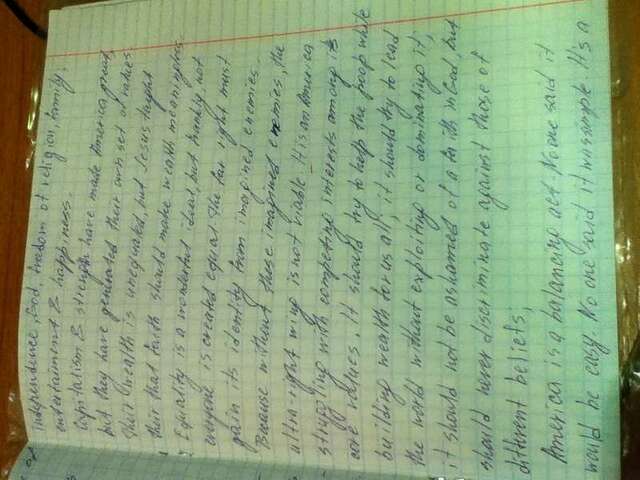 independence, God, freedom of religion, family,
entertainment & happiness.
Capitalism & strength have made America great,
but they have generated their own set of values
Their wealth is unequaled, but Jesus taught
their that faith should make wealth meaningless.
Equality is a wonderful ideal, but frankly, not
everyone is created equal. The far right must
gain its identity from imagined enemies.
Because without those imagined enemies, the
ultra right wing is not viable. It is an America
struggling with competing interests among its
core values. It should try to help the poor while
building wealth for us all, it should try to lead
the world without exploiting or dominating it,
it should not be ashamed of a faith in God, but
should never discriminate against those of
different beliefs,
America is a balancing act. No one said it
would be easy. No one said it was simple. It's a